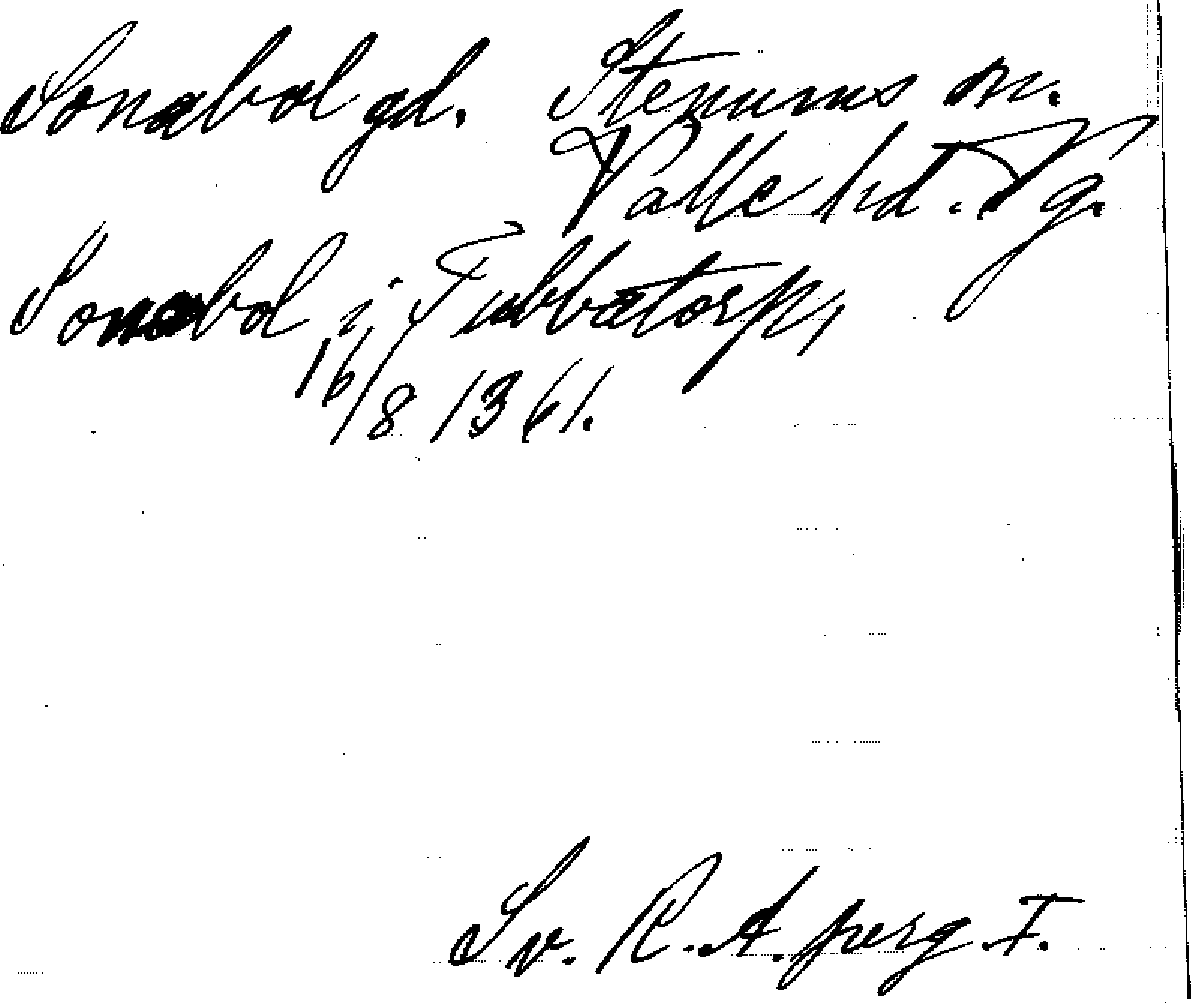 Sonabol gd. Stenums sn.
Valle hd. Vg.
Sonabol i Tubbatorp,
16/8 1361.
Sv. R. A. perg. I.